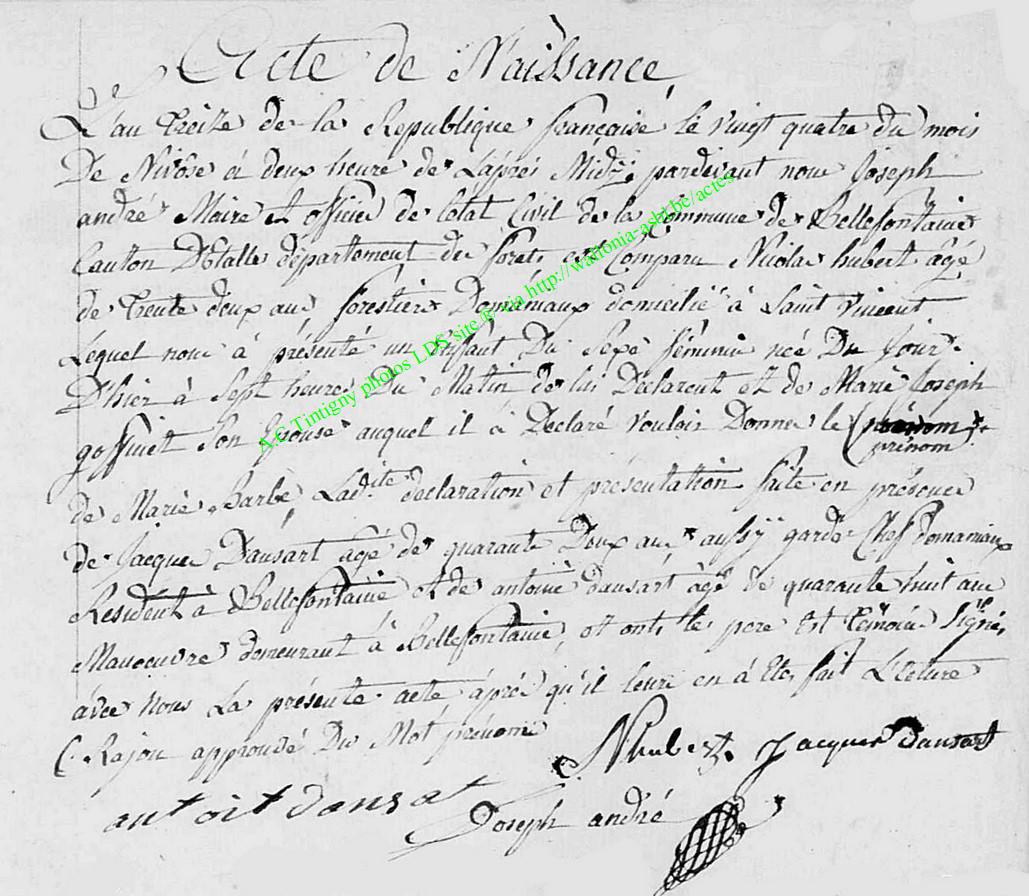 Acte de Naissance
L'an treize de la Republique française le vingt quatre du mois
De Nivôse à deux heure de L'après Midi, pardevant nous Joseph
andré Maire et officier de l'état Civil de la Commune de Bellefontaine
Canton D'Etalle département des forets est Comparu Nicolas hubert agé
de trente deux ans forestiers Domaniaux domicilié à Saint Vincent
Lequel nous à présenté un Enfant Du Sexe féminin née Du Jour
D'hier à Sept heures Du Matin de lui Déclarent et de Marie Joseph
goffinet Son Epouse auquel il à Declaré vouloir Donner le (prénom)
prénom
de Marie Barbe, Ladite declaration et présentation faite en présence
de Jacque Dansart agé de quarante Deux ans aussÿ garde Chef domaniaux
Resident à Bellefontaine et de antoine dansart agé de quarante huit ans
Manoeuvre demeurant à Bellefontaine, et ont le pere Est temoin Signé,
àvec Nous La présente acte àprés qu'il leurs en à Eté fait Lecture
(Rajou approuvé Du Mot prénom
Nhubert Jacques dansart
antoit dansat
Joseph andré
A.G Tintigny photos LDS site génia http://wallonia-asbl.be/actes